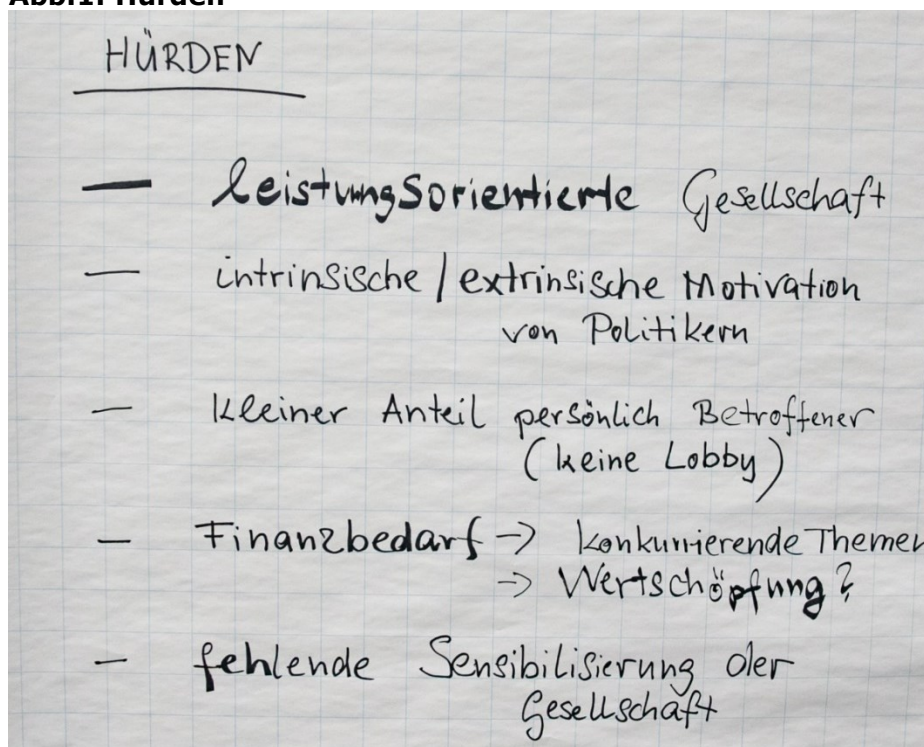 Abb.1: Hürden
HÜRDEN
— leistungsorientierte Gesellschaft
— intrinsische / extrinsische Motivation
von Politikern
— kleiner Anteil persönlich Betroffener
(keine Lobby)
— Finanzbedarf -> konkurrierende Themen
-> Wertschöpfung?
— fehlende Sensibilisierung der
Gesellschaft